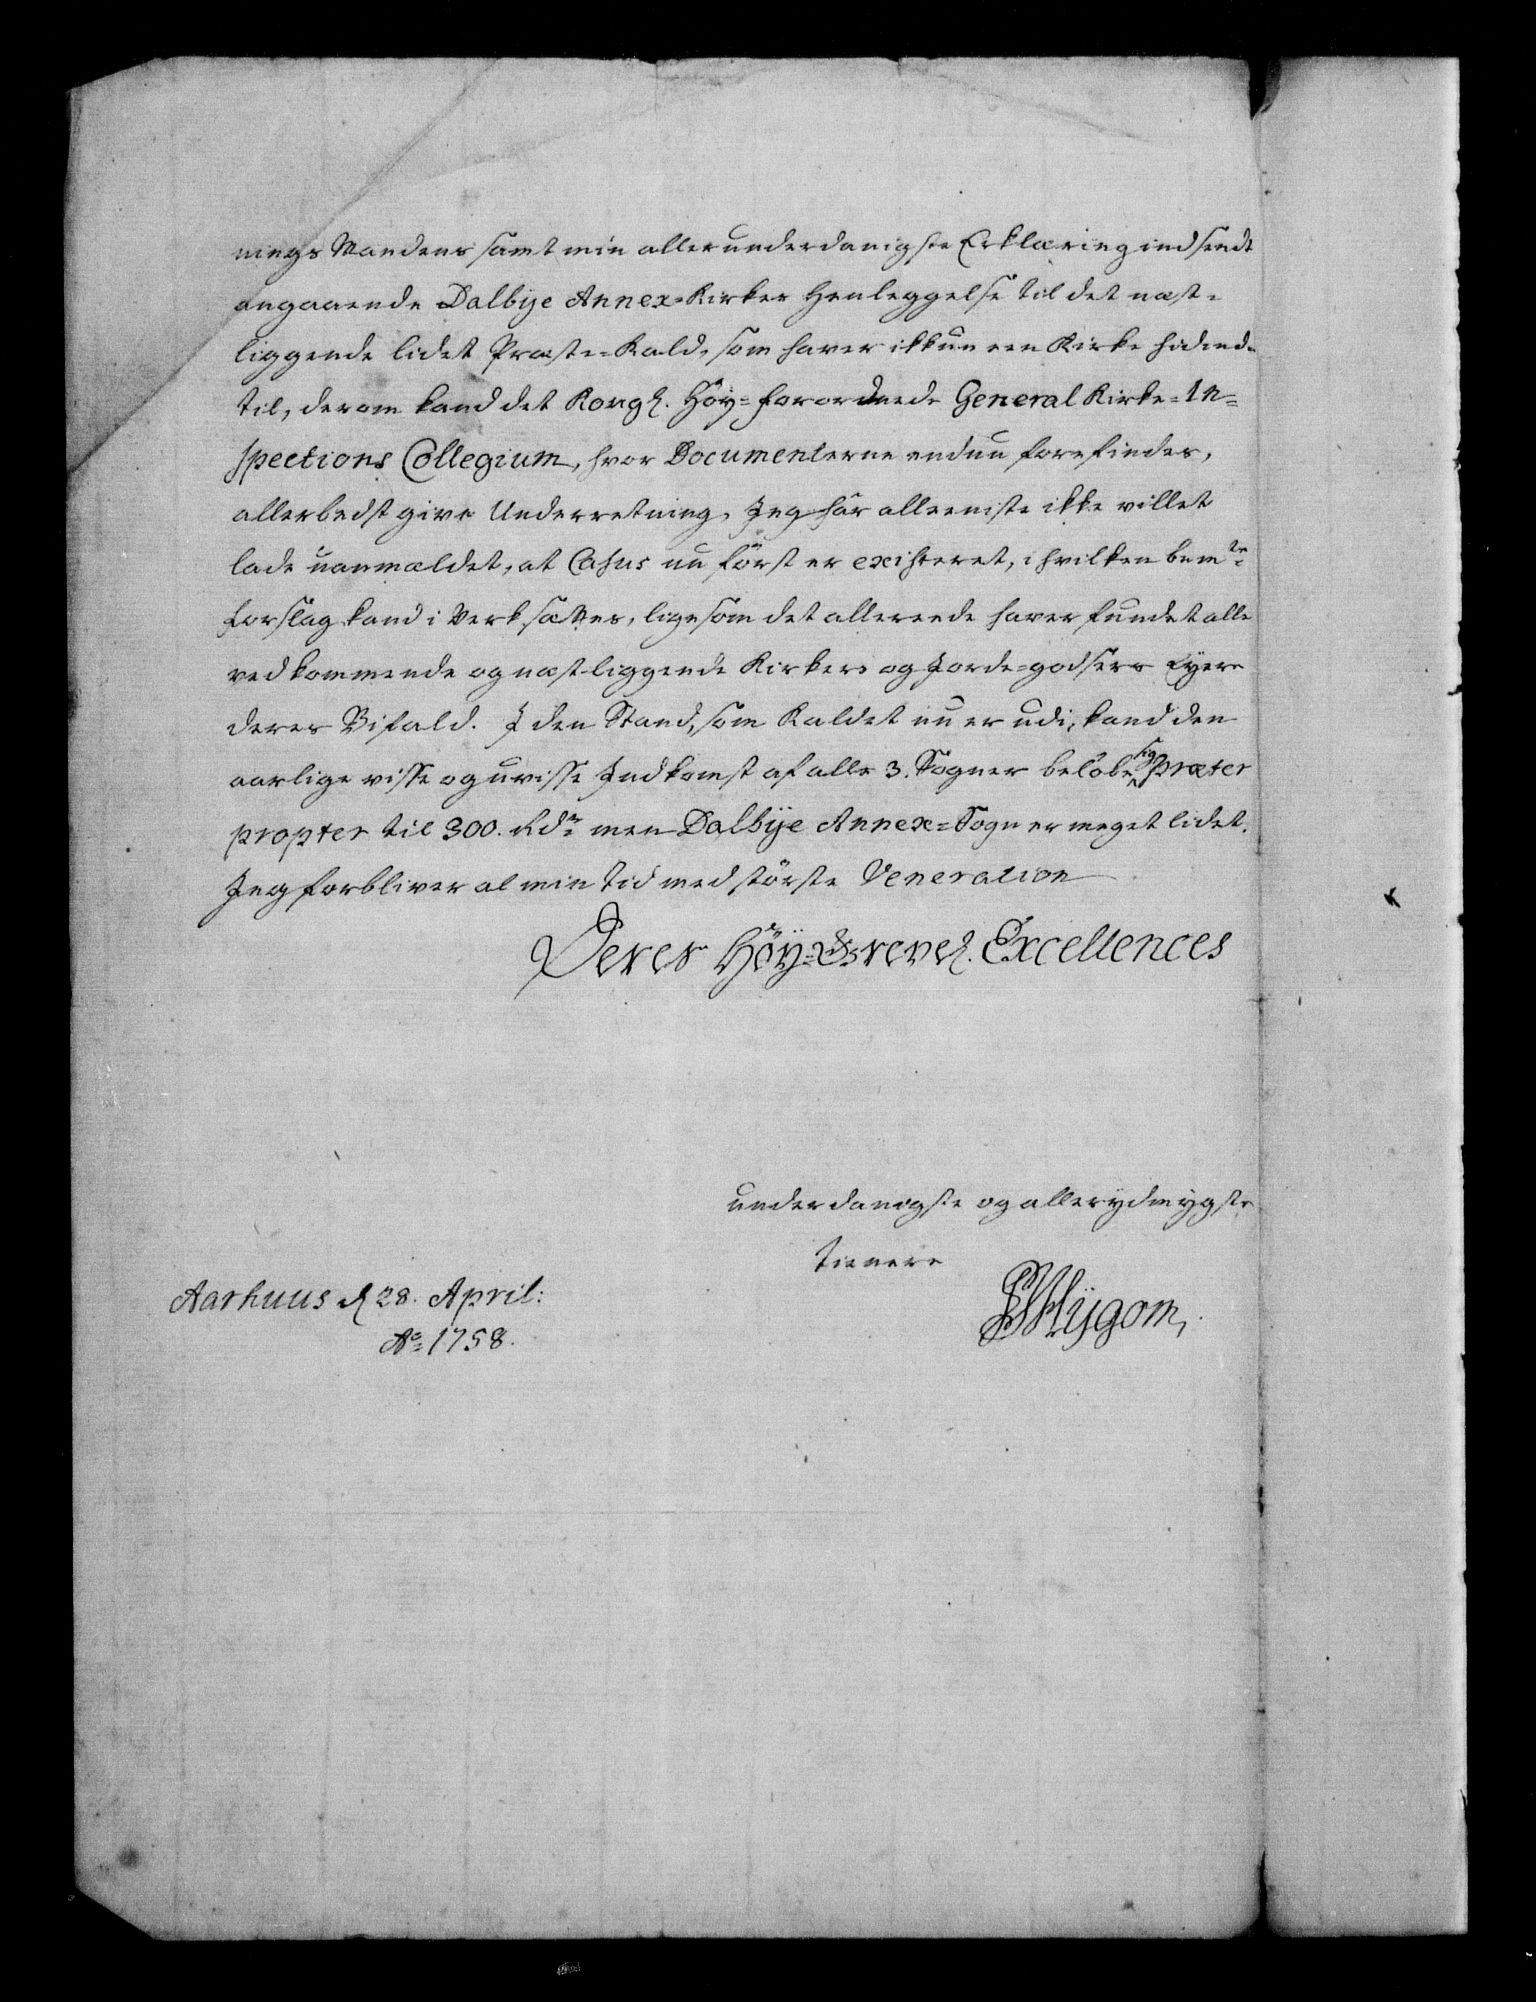 nings Mandens samt min allerunderdanigste Erklæring indsendt
angaaende Dalbÿe Annex-Kirkes Henleggelse til det næst-
liggende lidet Præste-Kald, som haver ikkun een Kirke hidind-
til, derom kand det Kongl. Höy-forordnede General Kirke-In-
spections Collegium, hvor Documenterne endnu forefindes,
allerbedst give Underretning. Jeg har alleeniste ikke villet
lade uanmældet, at Casus nu först er existeret, i hvilken bemte
forslag kand i Verk sættes, ligesom det allereede haver fundet alle
vedkommende og næstliggende Kirkers og Jorde-godsers Eyere
deres Bifald. I den Stand, som Kaldet nu er udi, kand den
aarlige visse og uvisse Indkomst af alle 3. Sogner belöbe sig præter
propter til 300. Rdr men Dalbÿe Annex-Sogn er meget lidet.
Jeg forbliver al min Tid med störste Veneration
Deres Höy-Grevel. Excellences
underdanigste og allerydmygste
Tienere
Aarhuus d 28. April:
Ao 1758.
Hÿgom,